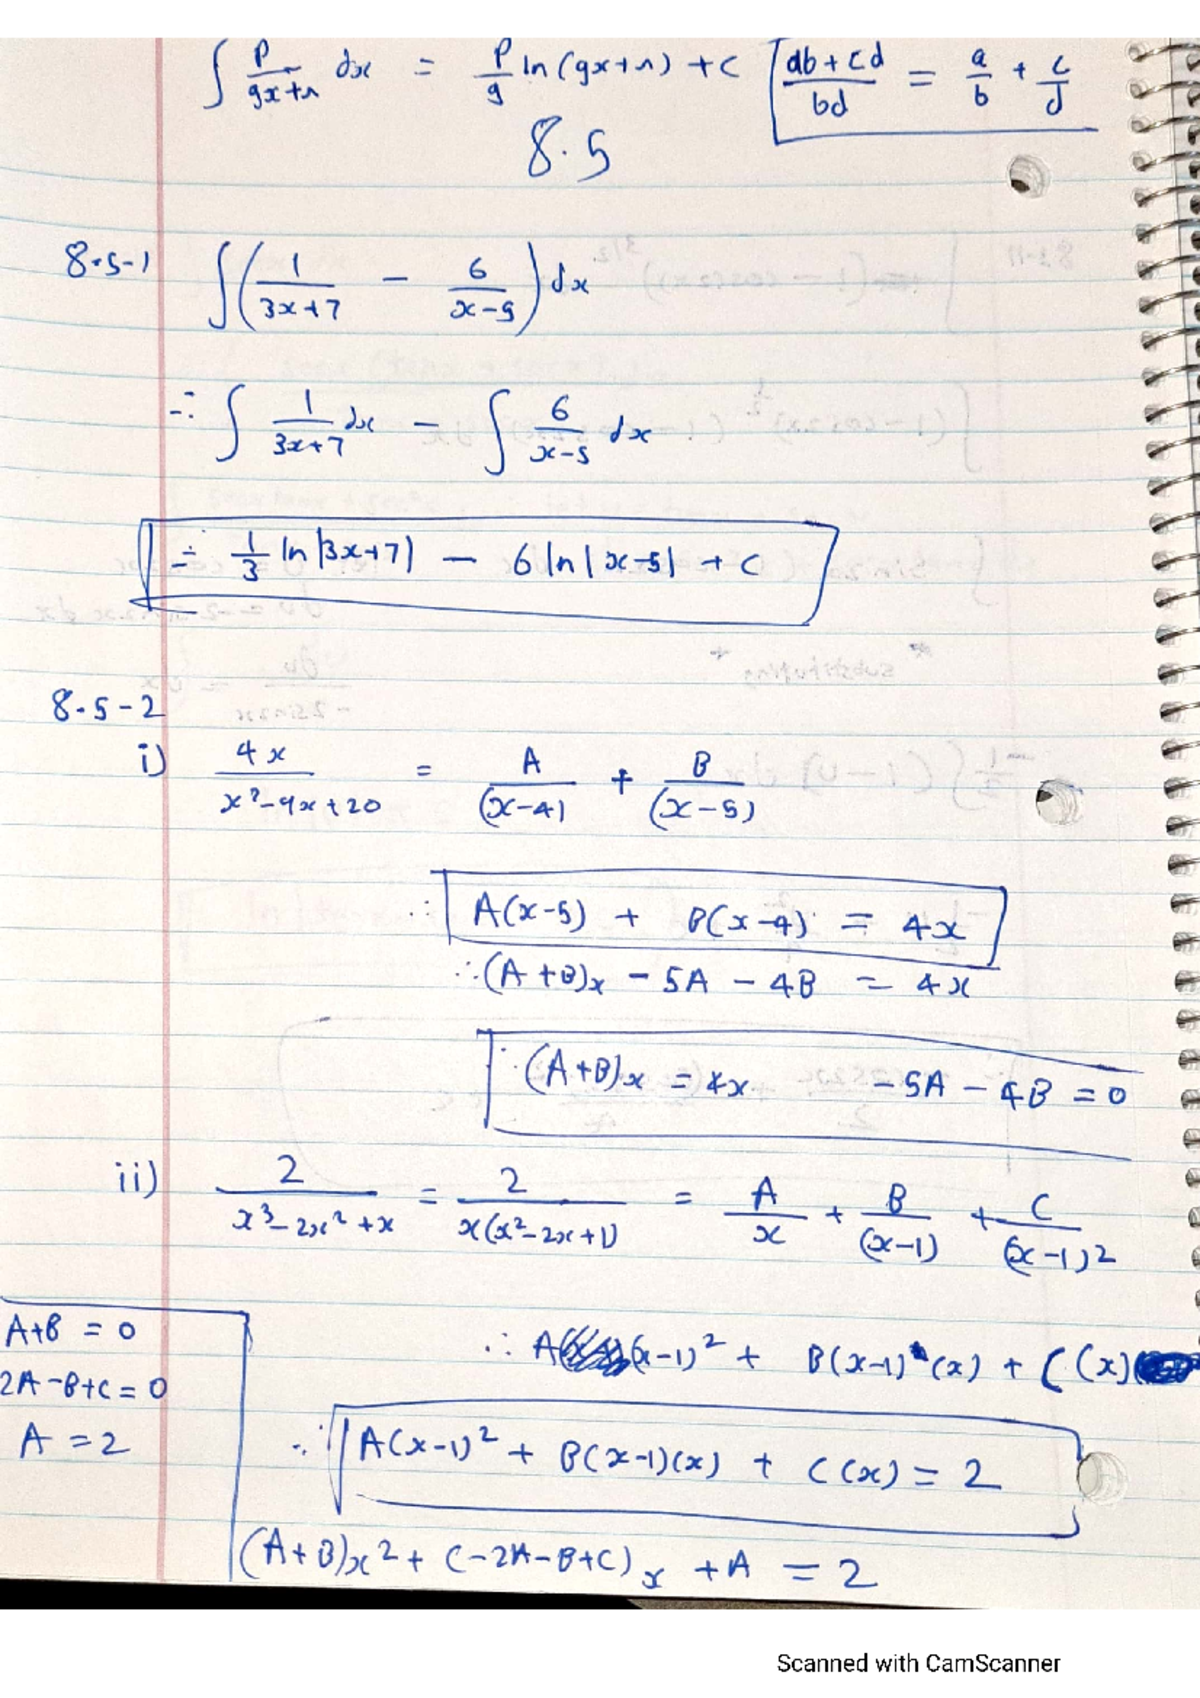 ∫ p/(qx+n) dx = p/q ln(qx+n) + C   (db+cd)/bd = a/b + c/d
8.5
8.5-1 ∫(1/(3x+7) − 6/(x−5))dx
∴ ∫ 1/(3x+7) dx − ∫ 6/(x−5) dx
∴ 1/3 ln|3x+7| − 6 ln|x−5| + C
8.5-2
i) 4x/(x²−9x+20) = A/(x−4) + B/(x−5)
∴ A(x−5) + B(x−4) = 4x
∴ (A+B)x − 5A − 4B = 4x
∴ (A+B)x = 4x   −5A − 4B = 0
ii) 2/(x³−2x²+x) = 2/(x(x²−2x+1)) = A/x + B/(x−1) + C/(x−1)²
∴ A(x−1)² + B(x−1)(x) + C(x)
A+B = 0
2A−B+C = 0
A = 2
∴ A(x−1)² + B(x−1)(x) + C(x) = 2
(A+B)x² + (−2A−B+C)x + A = 2
Scanned with CamScanner